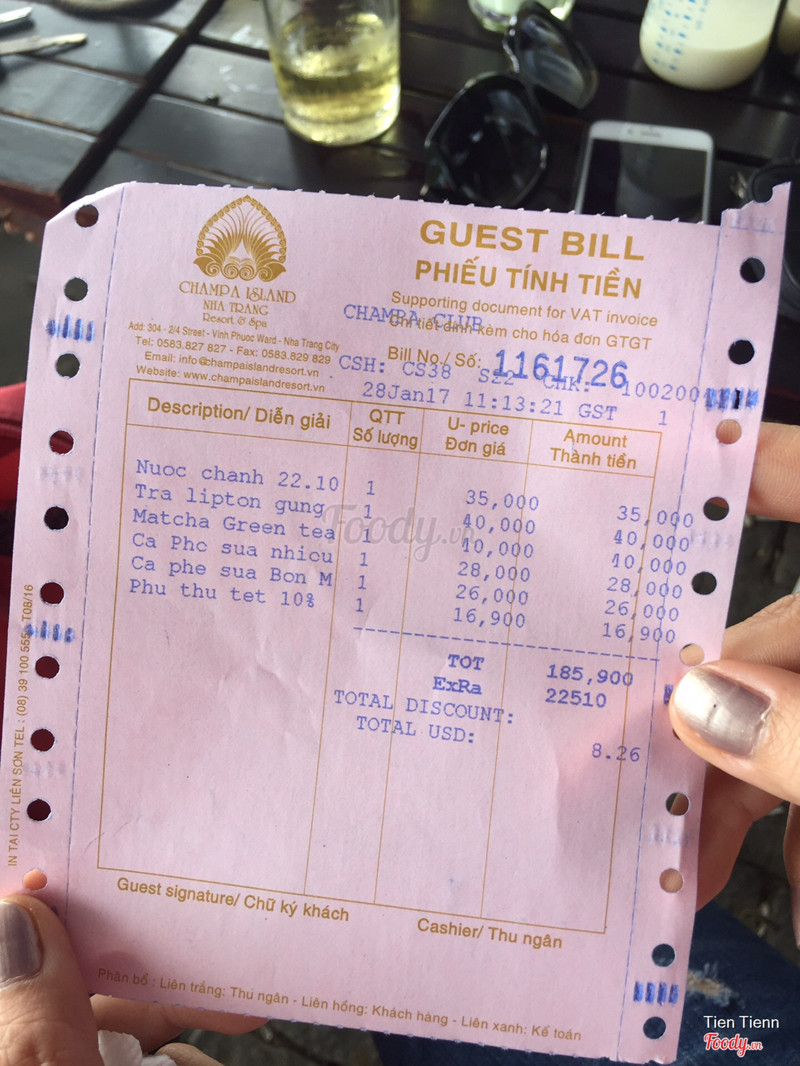 GUEST BILL
PHIẾU TÍNH TIỀN
Supporting document for VAT invoice
Chi tiết đính kèm cho hóa đơn GTGT
CHAMPA ISLAND
NHA TRANG
Resort & Spa
Add: 304 - 2/4 Street - Vinh Phuoc Ward - Nha Trang City
Tel: 0583.827 827 - Fax: 0583.829 829
Email: info@champaislandresort.vn
Website: www.champaislandresort.vn
CHAMPA CLUB
Bill No./ Số: 1161726
CSH: CS38 S22 CHK: 100200
28Jan17 11:13:21 GST 1
Description/ Diễn giải QTT Số lượng U- price Đơn giá Amount Thành tiền
Nuoc chanh 22.10 1 35,000 35,000
Tra lipton gung 1 40,000 40,000
Matcha Green tea 1 40,000 40,000
Ca Phe sua nhieu 1 28,000 28,000
Ca phe sua Bon M 1 26,000 26,000
Phu thu tet 10% 1 16,900 16,900
TOT 185,900
ExRa 22510
TOTAL DISCOUNT:
TOTAL USD: 8.26
Guest signature/ Chữ ký khách
Cashier/ Thu ngân
Phân bổ : Liên trắng: Thu ngân - Liên hồng: Khách hàng - Liên xanh: Kế toán
IN TẠI CTY LIÊN SƠN TEL : (08) 39 100 555 - T08/16
Foody.vn
Tien Tienn
Foody.vn